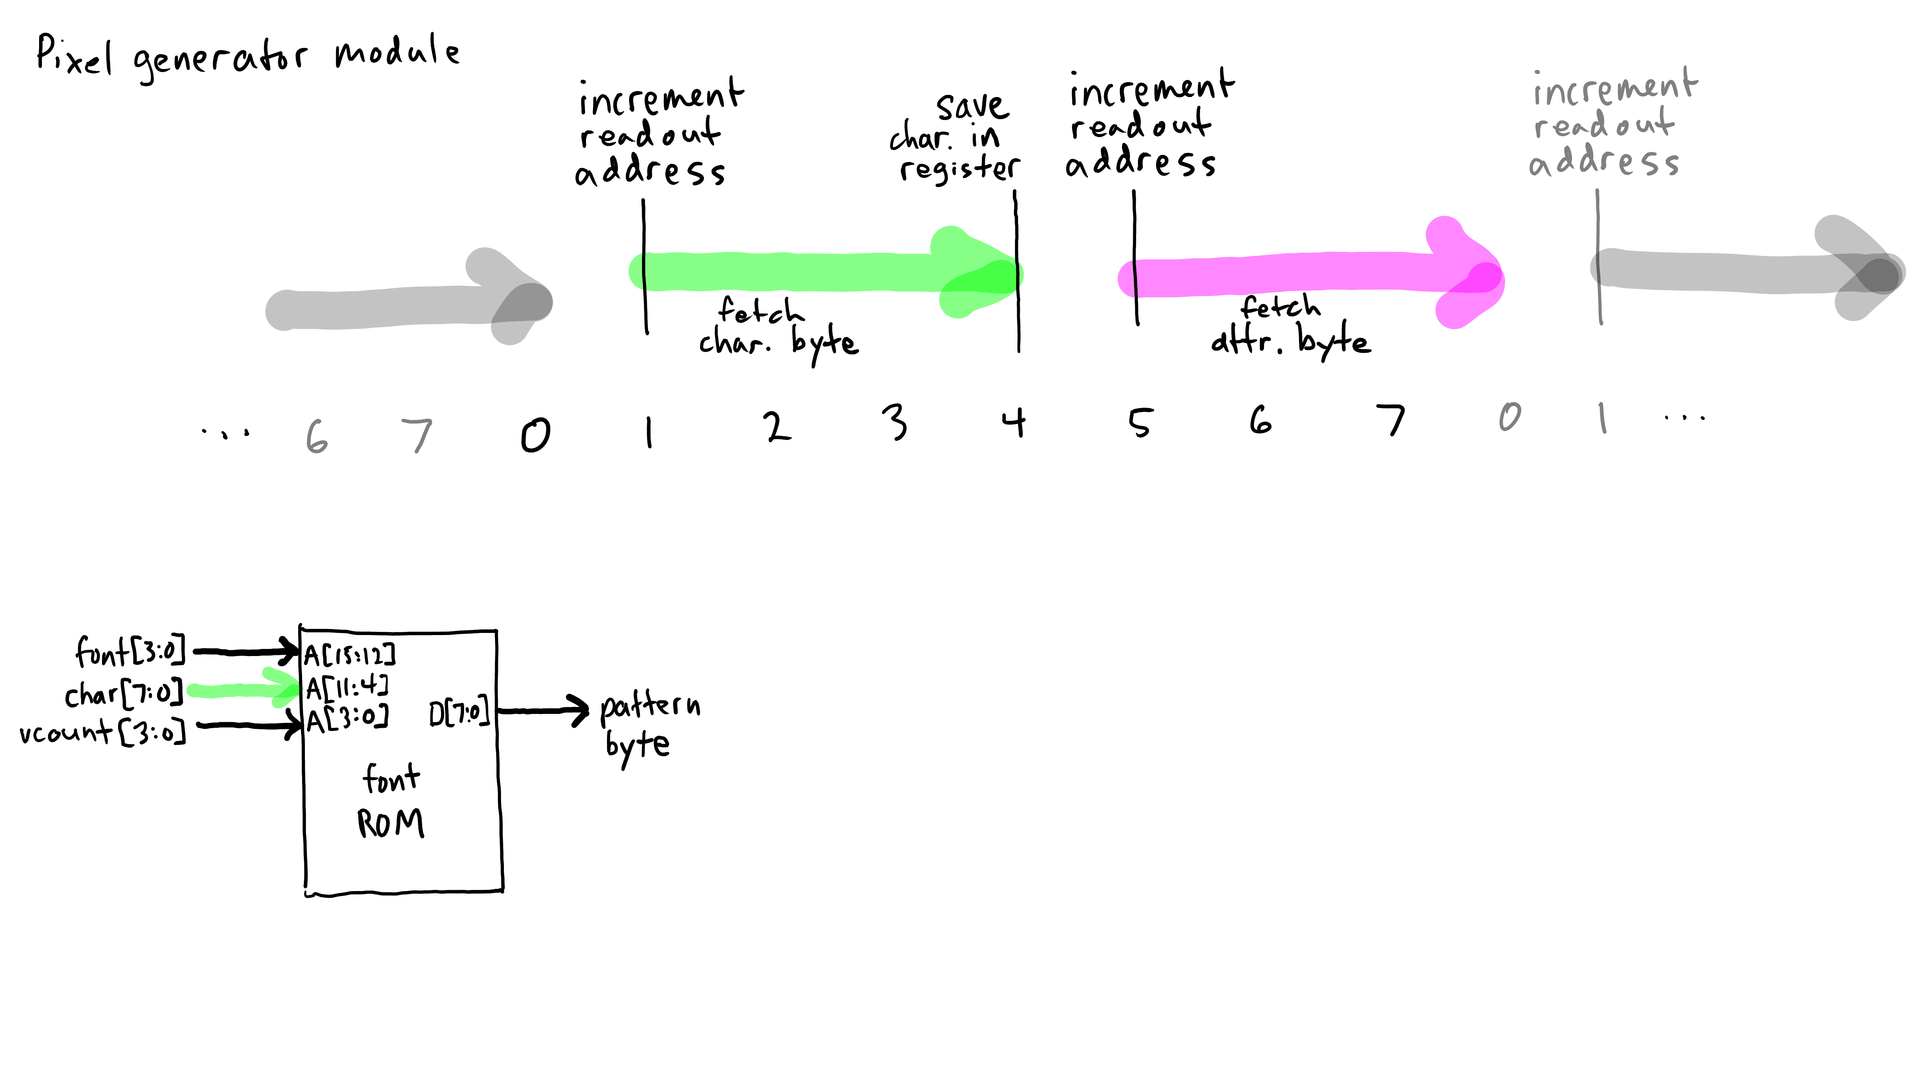 Pixel generator module
increment
readout
address
save
char. in
register
increment
readout
address
increment
readout
address
fetch
char. byte
fetch
attr. byte
... 6 7 0 1 2 3 4 5 6 7 0 1 ...
font[3:0]
char[7:0]
vcount[3:0]
A[15:12]
A[11:4]
A[3:0]
D[7:0]
pattern
byte
font
ROM